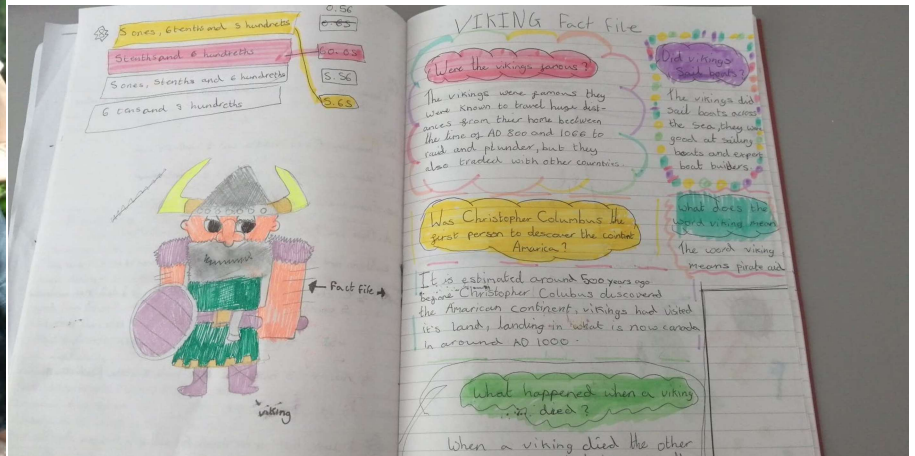 5 ones, 6 tenths and 5 hundreths
5 tenths and 6 hundreths
5 ones, 5 tenths and 6 hundreths
6 tens and 5 hundreths
0.56
0.65
60.05
5.56
5.65
Fact File
viking
VIKING Fact File
Were the vikings famous?
The vikings were famous they
were known to travel huge dist-
ances from their home beetween
the time of AD 800 and 1066 to
raid and plunder, but they
also traded with other countries.
Did vikings
sail boats?
The vikings did
sail boats across
the sea, they were
good at sailing
boats and expert
boat builders.
Was Christopher Columbus the
first person to descover the
Amarica?
What does the
word viking mean
The word viking
means pirate raid
It is estimated around 500 years ago
before Christopher Colubus discovered
the Amarican continent, vikings had visted
it's land, landing in what is now canada
in around AD 1000.
What happened when a viking
died?
When a viking died the other